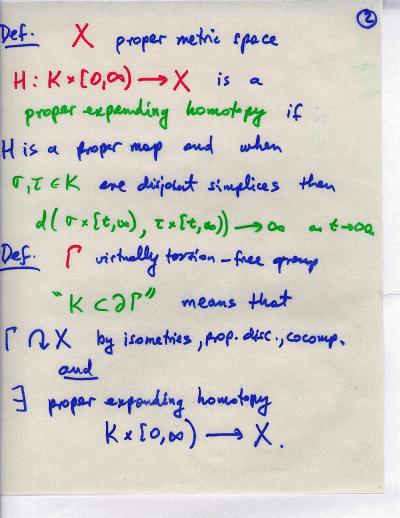 ②
Def. X proper metric space
H : K × [0,∞) → X is a
proper expanding homotopy if
H is a proper map and when
σ,τ ∈ K are disjoint simplices then
d( σ×[t,∞), τ×[t,∞)) → ∞ as t→∞.
Def. Γ virtually torsion-free group
"K ⊂ ∂Γ" means that
Γ ↷ X by isometries, prop. disc., cocomp.
and
∃ proper expanding homotopy
K × [0,∞) → X.